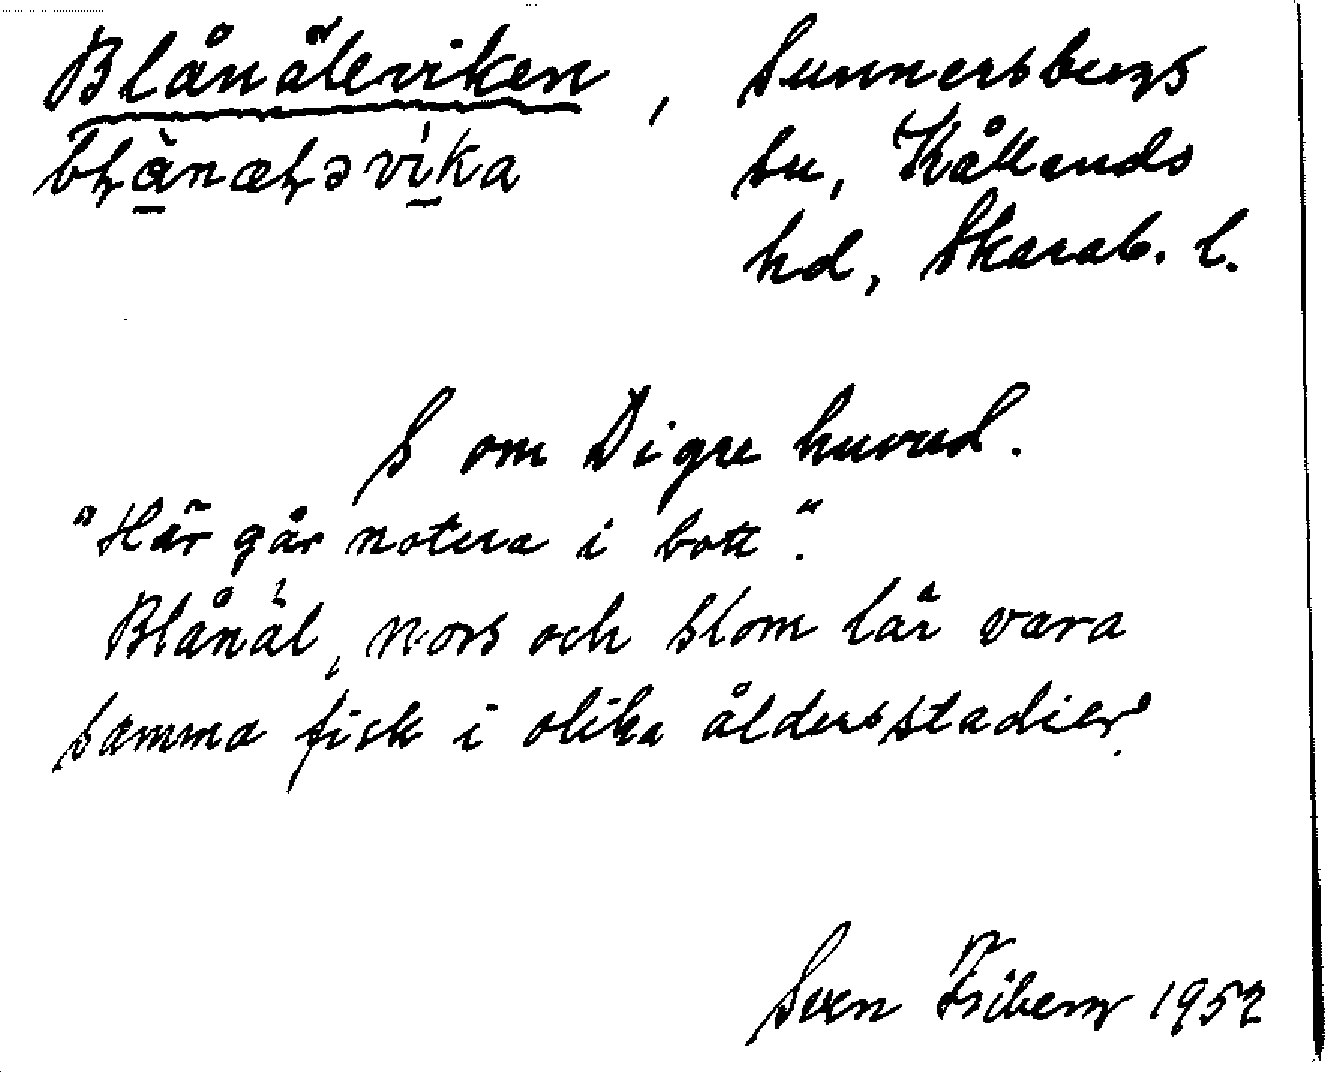 Blånäleviken, Sunnersbergs
sn, Kållands
hd, Skarab. l.
S om Digre huvud.
"Här går notera i bott".
Blånäl, nors och slom lär vara
samma fisk i olika åldersstadier.
Sven Friberg 1952